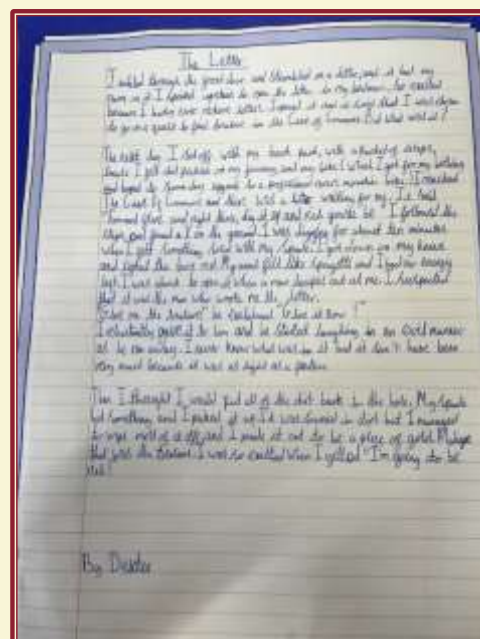 The Letter
I walked through the front door and stumbled on a letter, and it had my
name on it. I upstairs to open the letter in my bedroom. So excited
because I hadn't ever letters. I opened it and it says that I was chosen
to go on a quest to find treasure in the Cave of . But what was it?
The next day I set off with my back pack, with a of ,
I got and my bike which I got for my birthday
and hoped to some day upgrade to a professional mountain bike. I reached
the Cave of and there was a letter waiting for my. It said
forward and right there, dig it up and . I followed the
steps and found a X on the ground. I was digging for about ten minutes
when I got something solid with my spade. I got down on my knees
and the out. My felt like spaghetti and I had no energy
left. I was about to open it when a man jumped out at me. I suspected
that it was the man who wrote me the letter.
"Give me the treasure!" he exclaimed "Give it now!"
I reluctantly gave it to him and he started laughing in an evil manner
as he ran away. I never knew what was in it but it can't have been
very much because it was as light as a feather.
Then I thought I would put all of the dirt back in the hole. My spade
hit something and I picked it up. It was covered in dirt but I managed
to wipe most of it off, and I made it out to be a piece of gold. Maybe
that was the treasure. I was so excited when I yelled "I'm going to be
rich!"
By Dexter